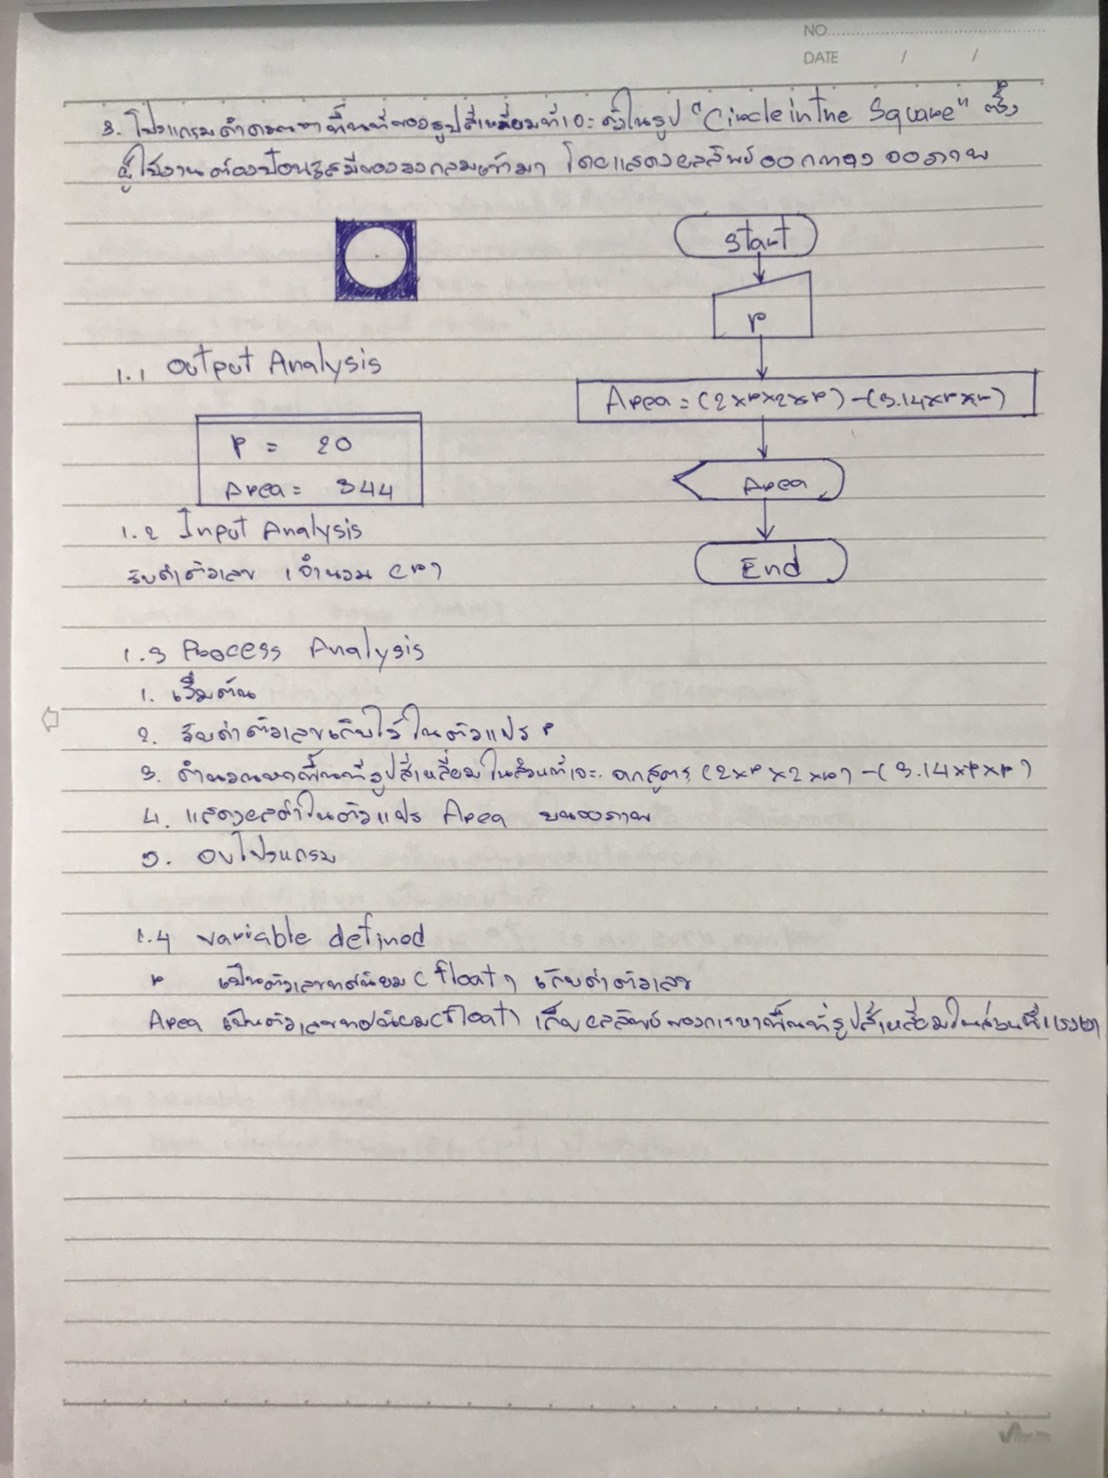 NO.
DATE / /
3. โปรแกรมคำนวณหาพื้นที่ของรูปสี่เหลี่ยมที่เจาะ ดังในรูป "Circle in the Square" ซึ่ง
ผู้ใช้งานต้องป้อนรัศมีของวงกลมเข้ามา โดยแสดงผลลัพธ์ออกทางจอภาพ
Start
r
Area = (2×r×2×r) - (3.14×r×r)
Area
End
1.1 Output Analysis
r = 20
Area = 344
1.2 Input Analysis
รับค่าตัวเลข 1 จำนวน (r)
1.3 Process Analysis
1. เริ่มต้น
2. รับค่าตัวเลขเก็บไว้ในตัวแปร r
3. คำนวณหาพื้นที่รูปสี่เหลี่ยมในส่วนที่เจาะ จากสูตร (2×r×2×r) - (3.14×r×r)
4. แสดงผลค่าในตัวแปร Area บนจอภาพ
5. จบโปรแกรม
1.4 variable defined
r เป็นตัวเลขทศนิยม (float) เก็บค่าตัวเลข
Area เป็นตัวเลขทศนิยม (float) เก็บผลลัพธ์ของการหาพื้นที่รูปสี่เหลี่ยมในส่วนที่แรเงา